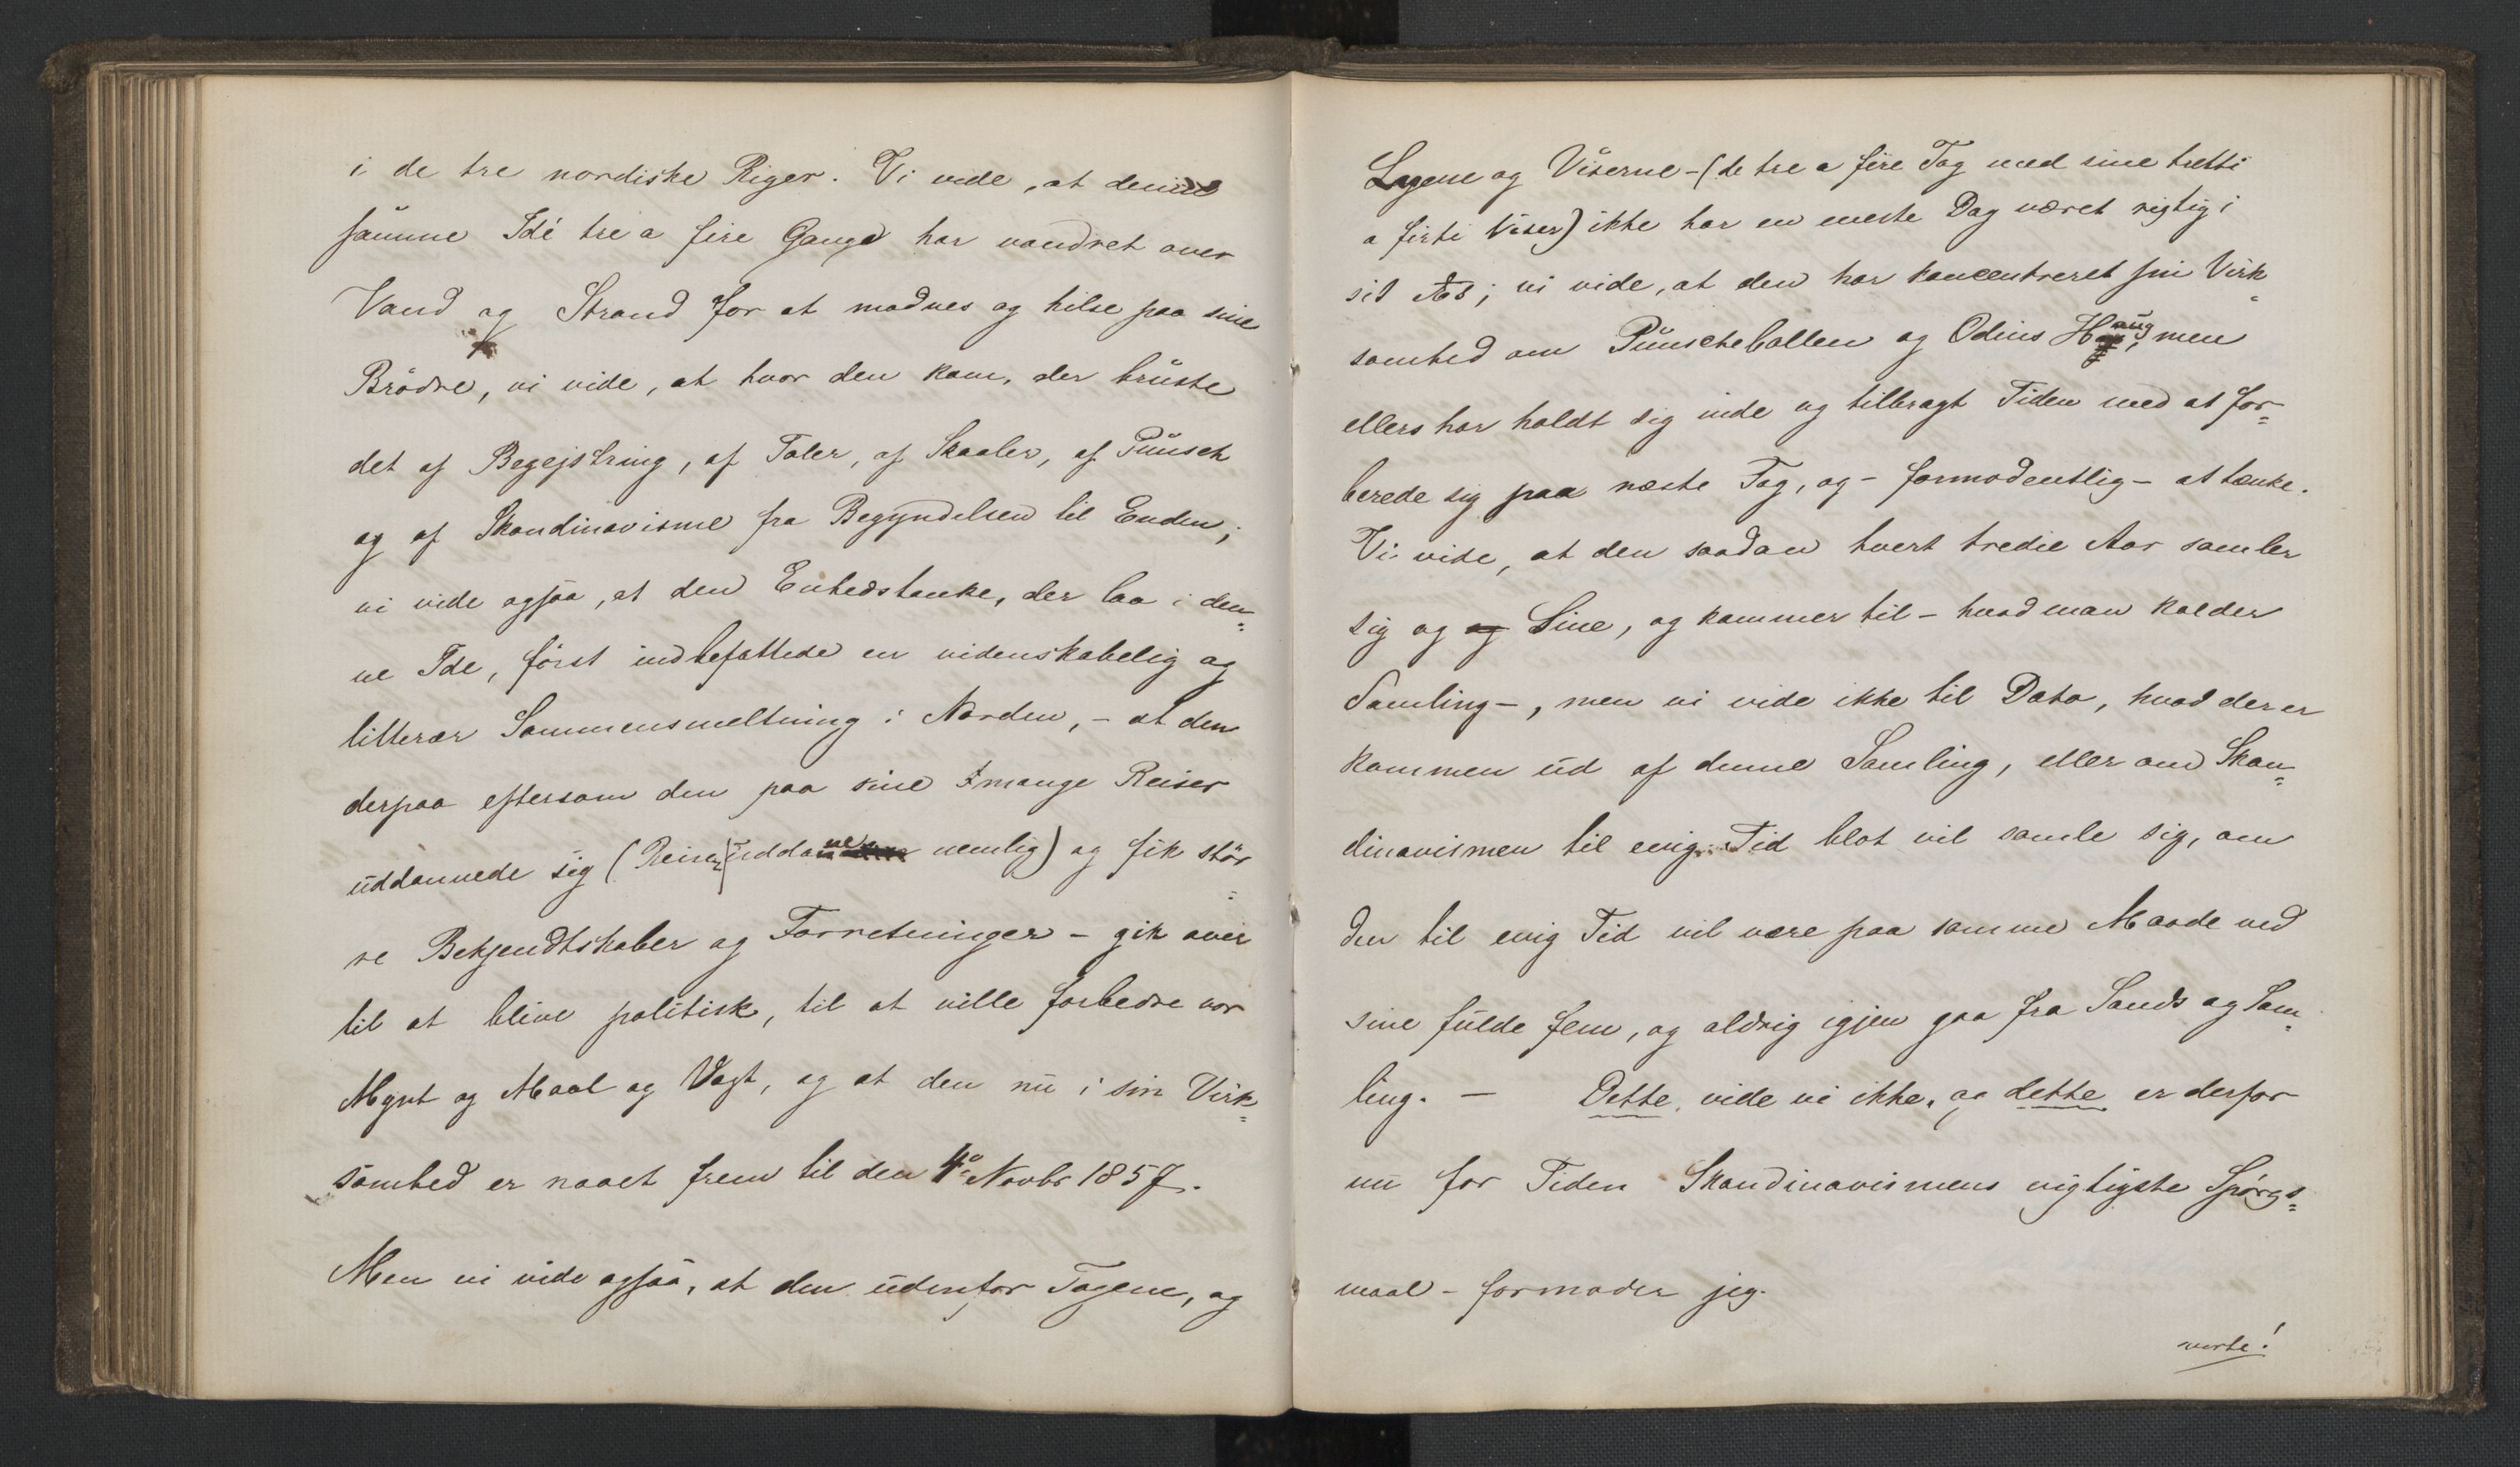 i de tre nordiske Riger. Vi vide, at denne
samme Idé tre a fire Gange har vandret over
Vand og Strand for at modnes og hilse paa sine
Brödre, vi vide, at hvor den kom, der bruste
det af Begejstring, af Taler, af Skaaler, af Punsch
og af Skandinavisme fra Begyndelsen til Enden;
vi vide ogsaa, at den Enhedstanke, der laa i den=
ne Ide, först indbefattede en videnskabelig og
litterær Sammensmeltning i Norden, - at den
derpaa eftersom den paa sine mange Reiser
uddannede sig (Reiser uddanne nemlig) og fik stör=
re Bekjendtskaber og Forretninger - gik over
til at blive politisk, til at ville forbedre vor
Mynt og Maal og Vægt, og at den nu i sin Virk=
somhed er naaet frem til den 4de Novbr 1857.
Men vi vide ogsaa, at den udenfor Togene, og
Viserne - (de tre a fire Tog med sine tretti
a firti Viser) ikke har en eneste Dag været rigtig i
sit Æs; vi vide, at den har koncentreret sin Virk=
somhed om Punschebollen og Odins Haug, men
ellers har holdt sig inde og tilbragt Tiden med at for=
berede sig paa næste Tog, og - formodentlig - at tænke.
Vi vide, at den saadan hvert tredie Aar samler
sig og og Sine, og kommer til - hvad man kalder
Samling -, men vi vide ikke til Dato, hvad der er
kommen ud af denne Samling, eller om Skan=
dinavismen til evig Tid blot vil samle sig, om
den til evig Tid vil være paa samme Maade ved
sine fulde fem, og aldrig igjen gaa fra Sands og Sam=
ling. - Dette vide vi ikke, og dette er derfor
nu for Tiden Skandinavismens vigtigste Spörgs=
maal - formoder jeg.
verte!